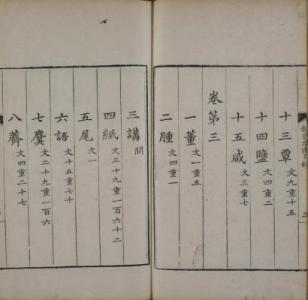 十三覃 文九重十五
十四鹽 文四重二
十五咸 文三重七
卷第三
一董 文一重五
二腫 文四重一
三講 闕
四紙 文三十九重一百六十二
五尾 文一
六語 文十五重七十
七麌 文二十九重一百六
八薺 文四重二十七